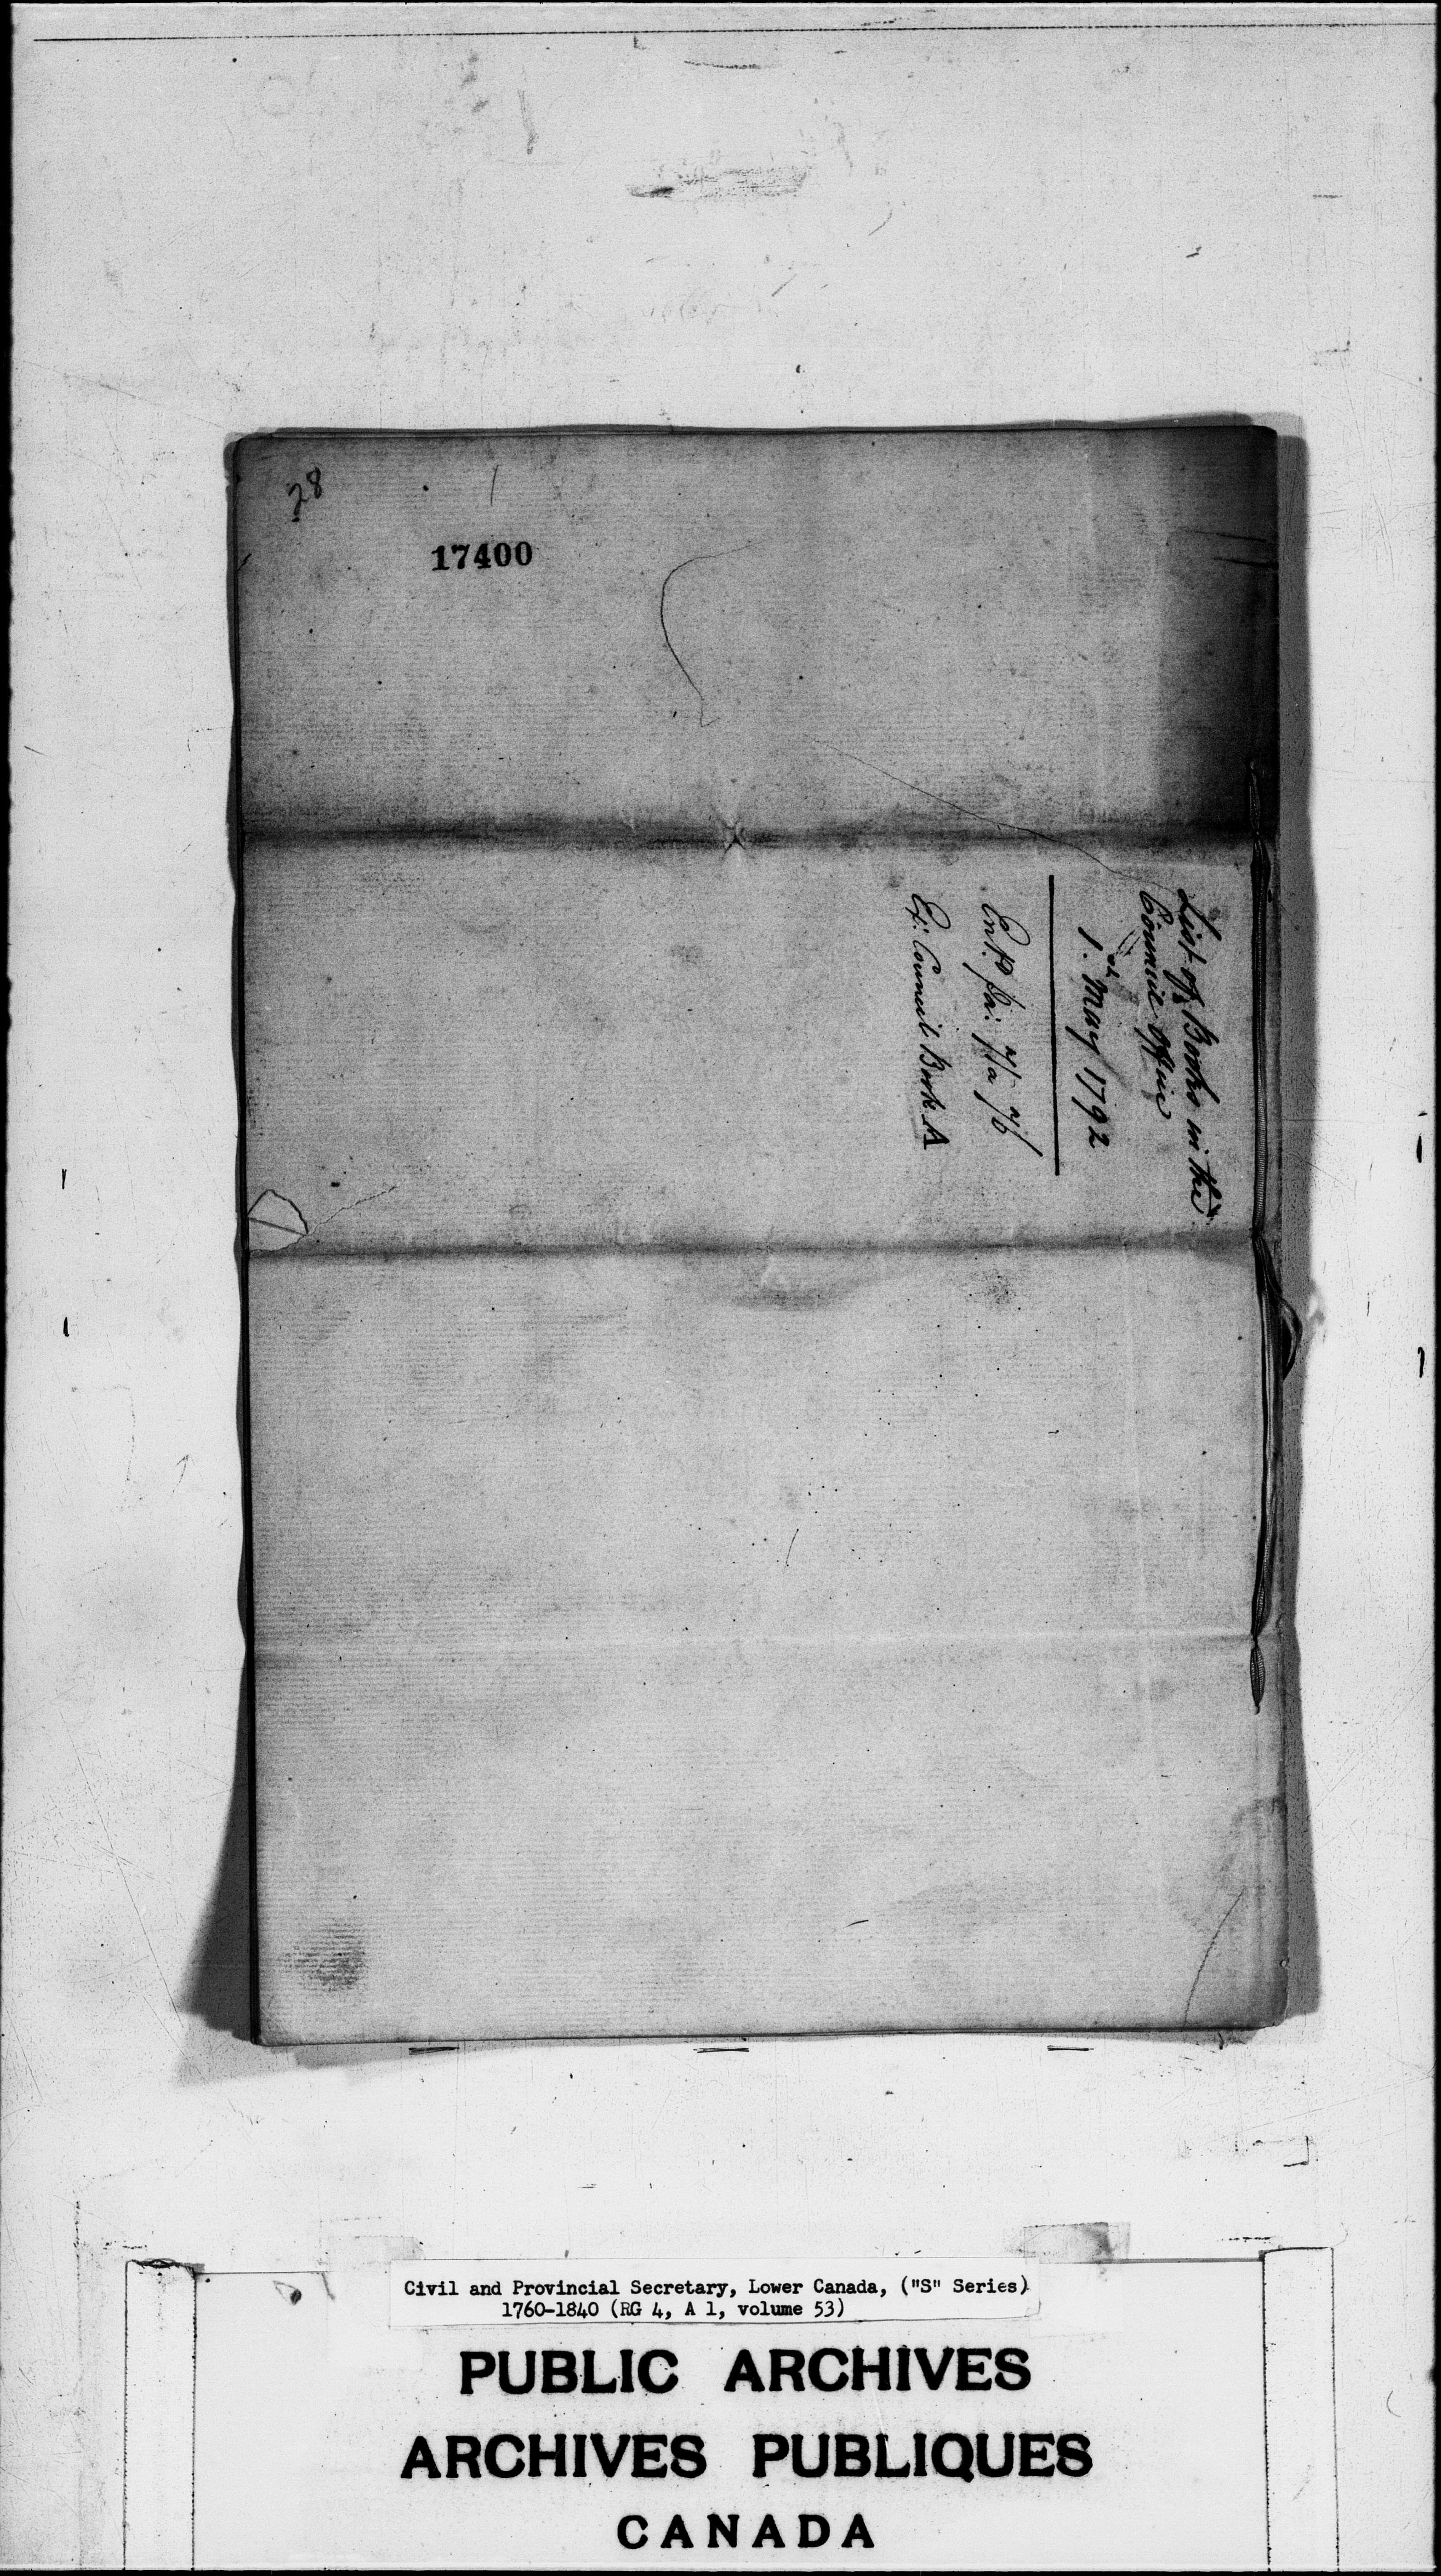 28
17400
List of Books in the
Council Office
1.st May 1792
Ent.d pa: 71 a 76
Ex: Council Book A
Civil and Provincial Secretary, Lower Canada, ("S" Series)
1760-1840 (RG 4, A 1, volume 53)
PUBLIC ARCHIVES
ARCHIVES PUBLIQUES
CANADA